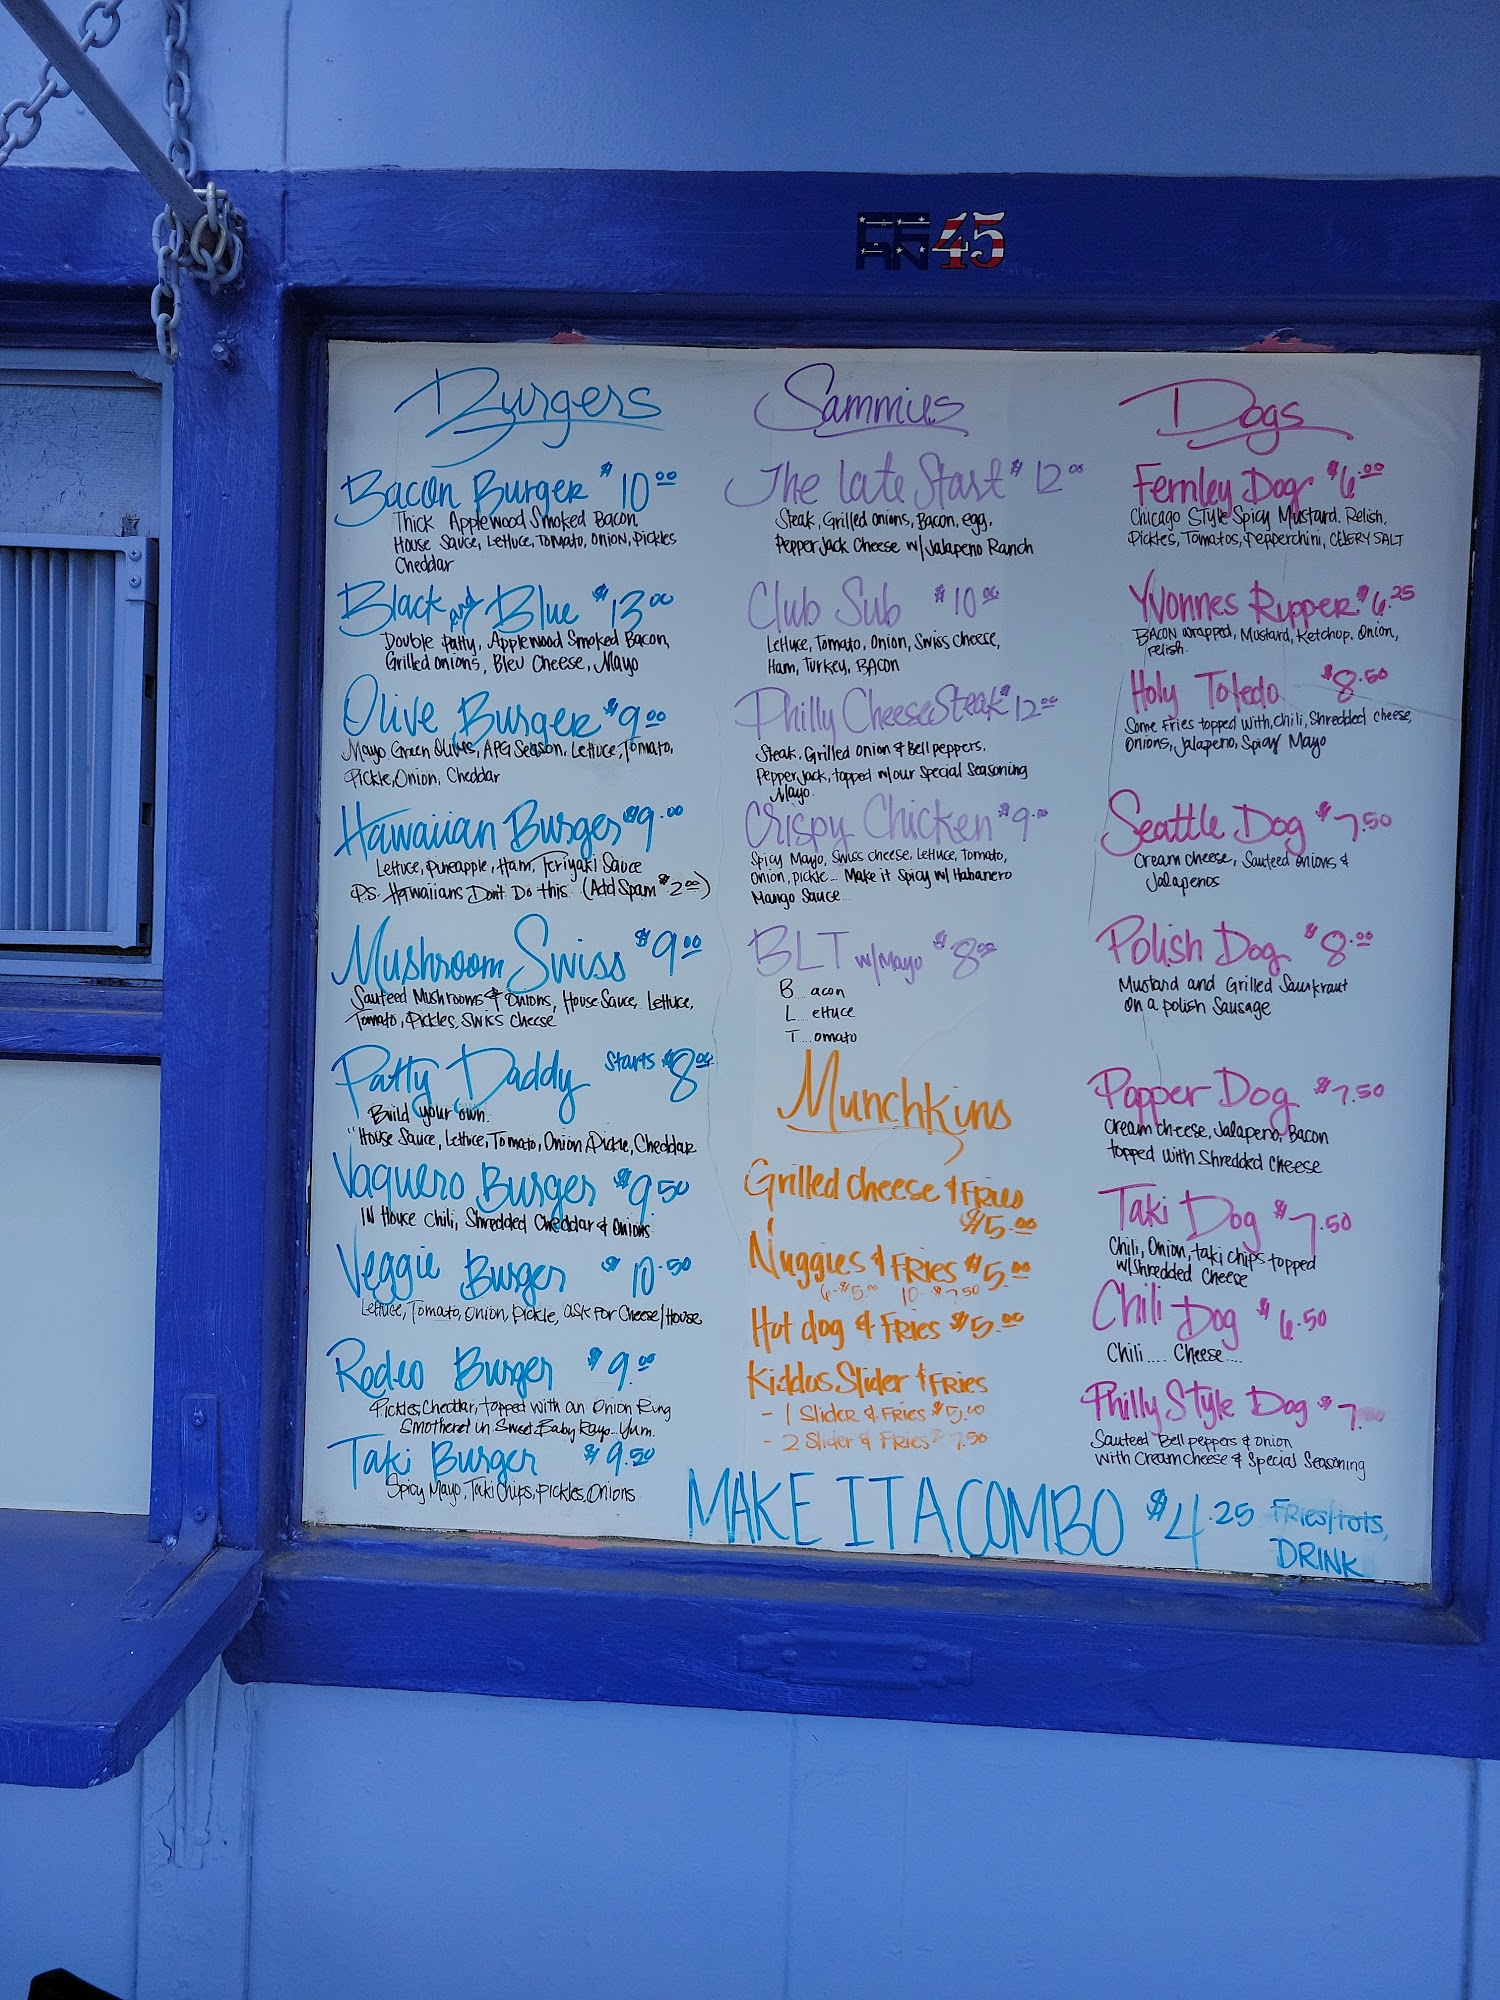 FERN45
Burgers
Bacon Burger $10.00
Thick Applewood Smoked Bacon,
House Sauce, Lettuce, Tomato, Onion, Pickles
Cheddar
Black and Blue $13.00
Double Patty, Applewood Smoked Bacon,
Grilled onions, Bleu Cheese, Mayo
Olive Burger $9.00
Mayo Green Olives, APG Season. Lettuce, Tomato,
Pickle, Onion, Cheddar
Hawaiian Burger $9.00
Lettuce, Pineapple, Ham, Teriyaki Sauce
P.S. Hawaiians Don't Do this. (Add Spam $2.00)
Mushroom Swiss $9.00
Sauteed Mushrooms & Onions, House Sauce, Lettuce,
Tomato, Pickles, Swiss Cheese
Patty Daddy Starts $8.00
Build your own.
"House Sauce, Lettuce, Tomato, Onion, Pickle, Cheddar
Vaquero Burger $9.50
IN House Chili, Shredded Cheddar & Onions
Veggie Burger $10.50
Lettuce, Tomato, Onion, Pickle, ask For Cheese/House
Rodeo Burger $9.00
Pickles, Cheddar, topped with an Onion Ring
Smothered in Sweet Baby Rays... Yum.
Taki Burger $9.50
Spicy Mayo, Taki Chips, Pickles, Onions
Sammies
The Late Start $12.00
Steak, Grilled onions, Bacon, egg,
Pepper Jack Cheese w/ Jalapeno Ranch
Club Sub $10.00
Lettuce, Tomato, Onion, Swiss cheese,
Ham, Turkey, BACON
Philly CheeseSteak $12.00
Steak, Grilled Onion & Bell peppers,
Pepper Jack, topped w/our Special Seasoning
Mayo.
Crispy Chicken $9.00
Spicy Mayo, Swiss cheese, Lettuce, Tomato,
Onion, pickle... Make it Spicy w/ Habanero
Mango Sauce...
BLT w/Mayo $8.00
B...acon
L...ettuce
T...omato
Munchkins
Grilled cheese & Fries
$5.00
Nuggies & Fries $5.00
6-$5.00 10-$7.50
Hot dog & Fries $5.00
Kiddos Slider & Fries
- 1 Slider & Fries $5.00
- 2 Slider & Fries $7.50
Dogs
Fernley Dog $6.00
Chicago Style Spicy Mustard. Relish,
Pickles, Tomatos, Pepperchini, CELERY SALT
Yvonnes Ripper $6.25
BACON wrapped, Mustard, Ketchup, Onion,
relish.
Holy Toledo $8.50
Some Fries topped with, Chili, Shredded cheese,
Onions, Jalapeno, Spicy Mayo
Seattle Dog $7.50
Cream cheese, Sauteed onions &
Jalapenos
Polish Dog $8.00
Mustard and Grilled Saurkraut
on a polish Sausage
Popper Dog $7.50
Cream cheese, Jalapeno, Bacon
topped with Shredded Cheese
Taki Dog $7.50
Chili, Onion, taki chips topped
w/Shredded Cheese
Chili Dog $6.50
Chili.... Cheese....
Philly Style Dog $7.
Sauteed Bell peppers & onion
with Creamcheese & Special Seasoning
MAKE IT A COMBO $4.25 Fries/tots,
DRINK